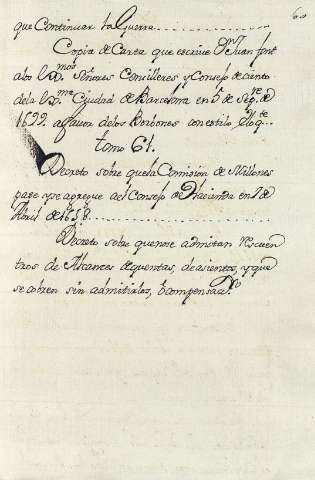 60
que Continuar la Guerra
Copia de Carta que escrive Dn Juan font
a los Exmos Señores Concilleres y Consejo de ciento
de la Exma Ciudad de Barcelona en 1º de Sepre de
1699. a favor de los Borbones con estilo
tomo 61.
Decreto sobre que la Comision de Millones
pase y se agregue a el Consejo de Hacienda en 7 de
Abril de 1658
Decreto sobre que no se admitan Rescuen
tros de Alcances de quentas, de asientos, y que
se cobren sin admitirlos,